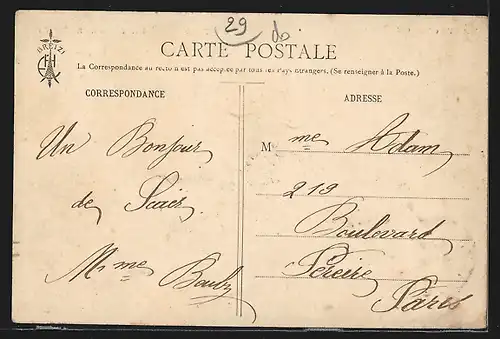 29 do
BREIZ
CARTE POSTALE
La Correspondance au recto n'est pas acceptée par tous les Pays étrangers. (Se renseigner à la Poste.)
CORRESPONDANCE
ADRESSE
Un Bonjour
de
Mme
Mme Adam
219
Boulevard
Pereire
Paris